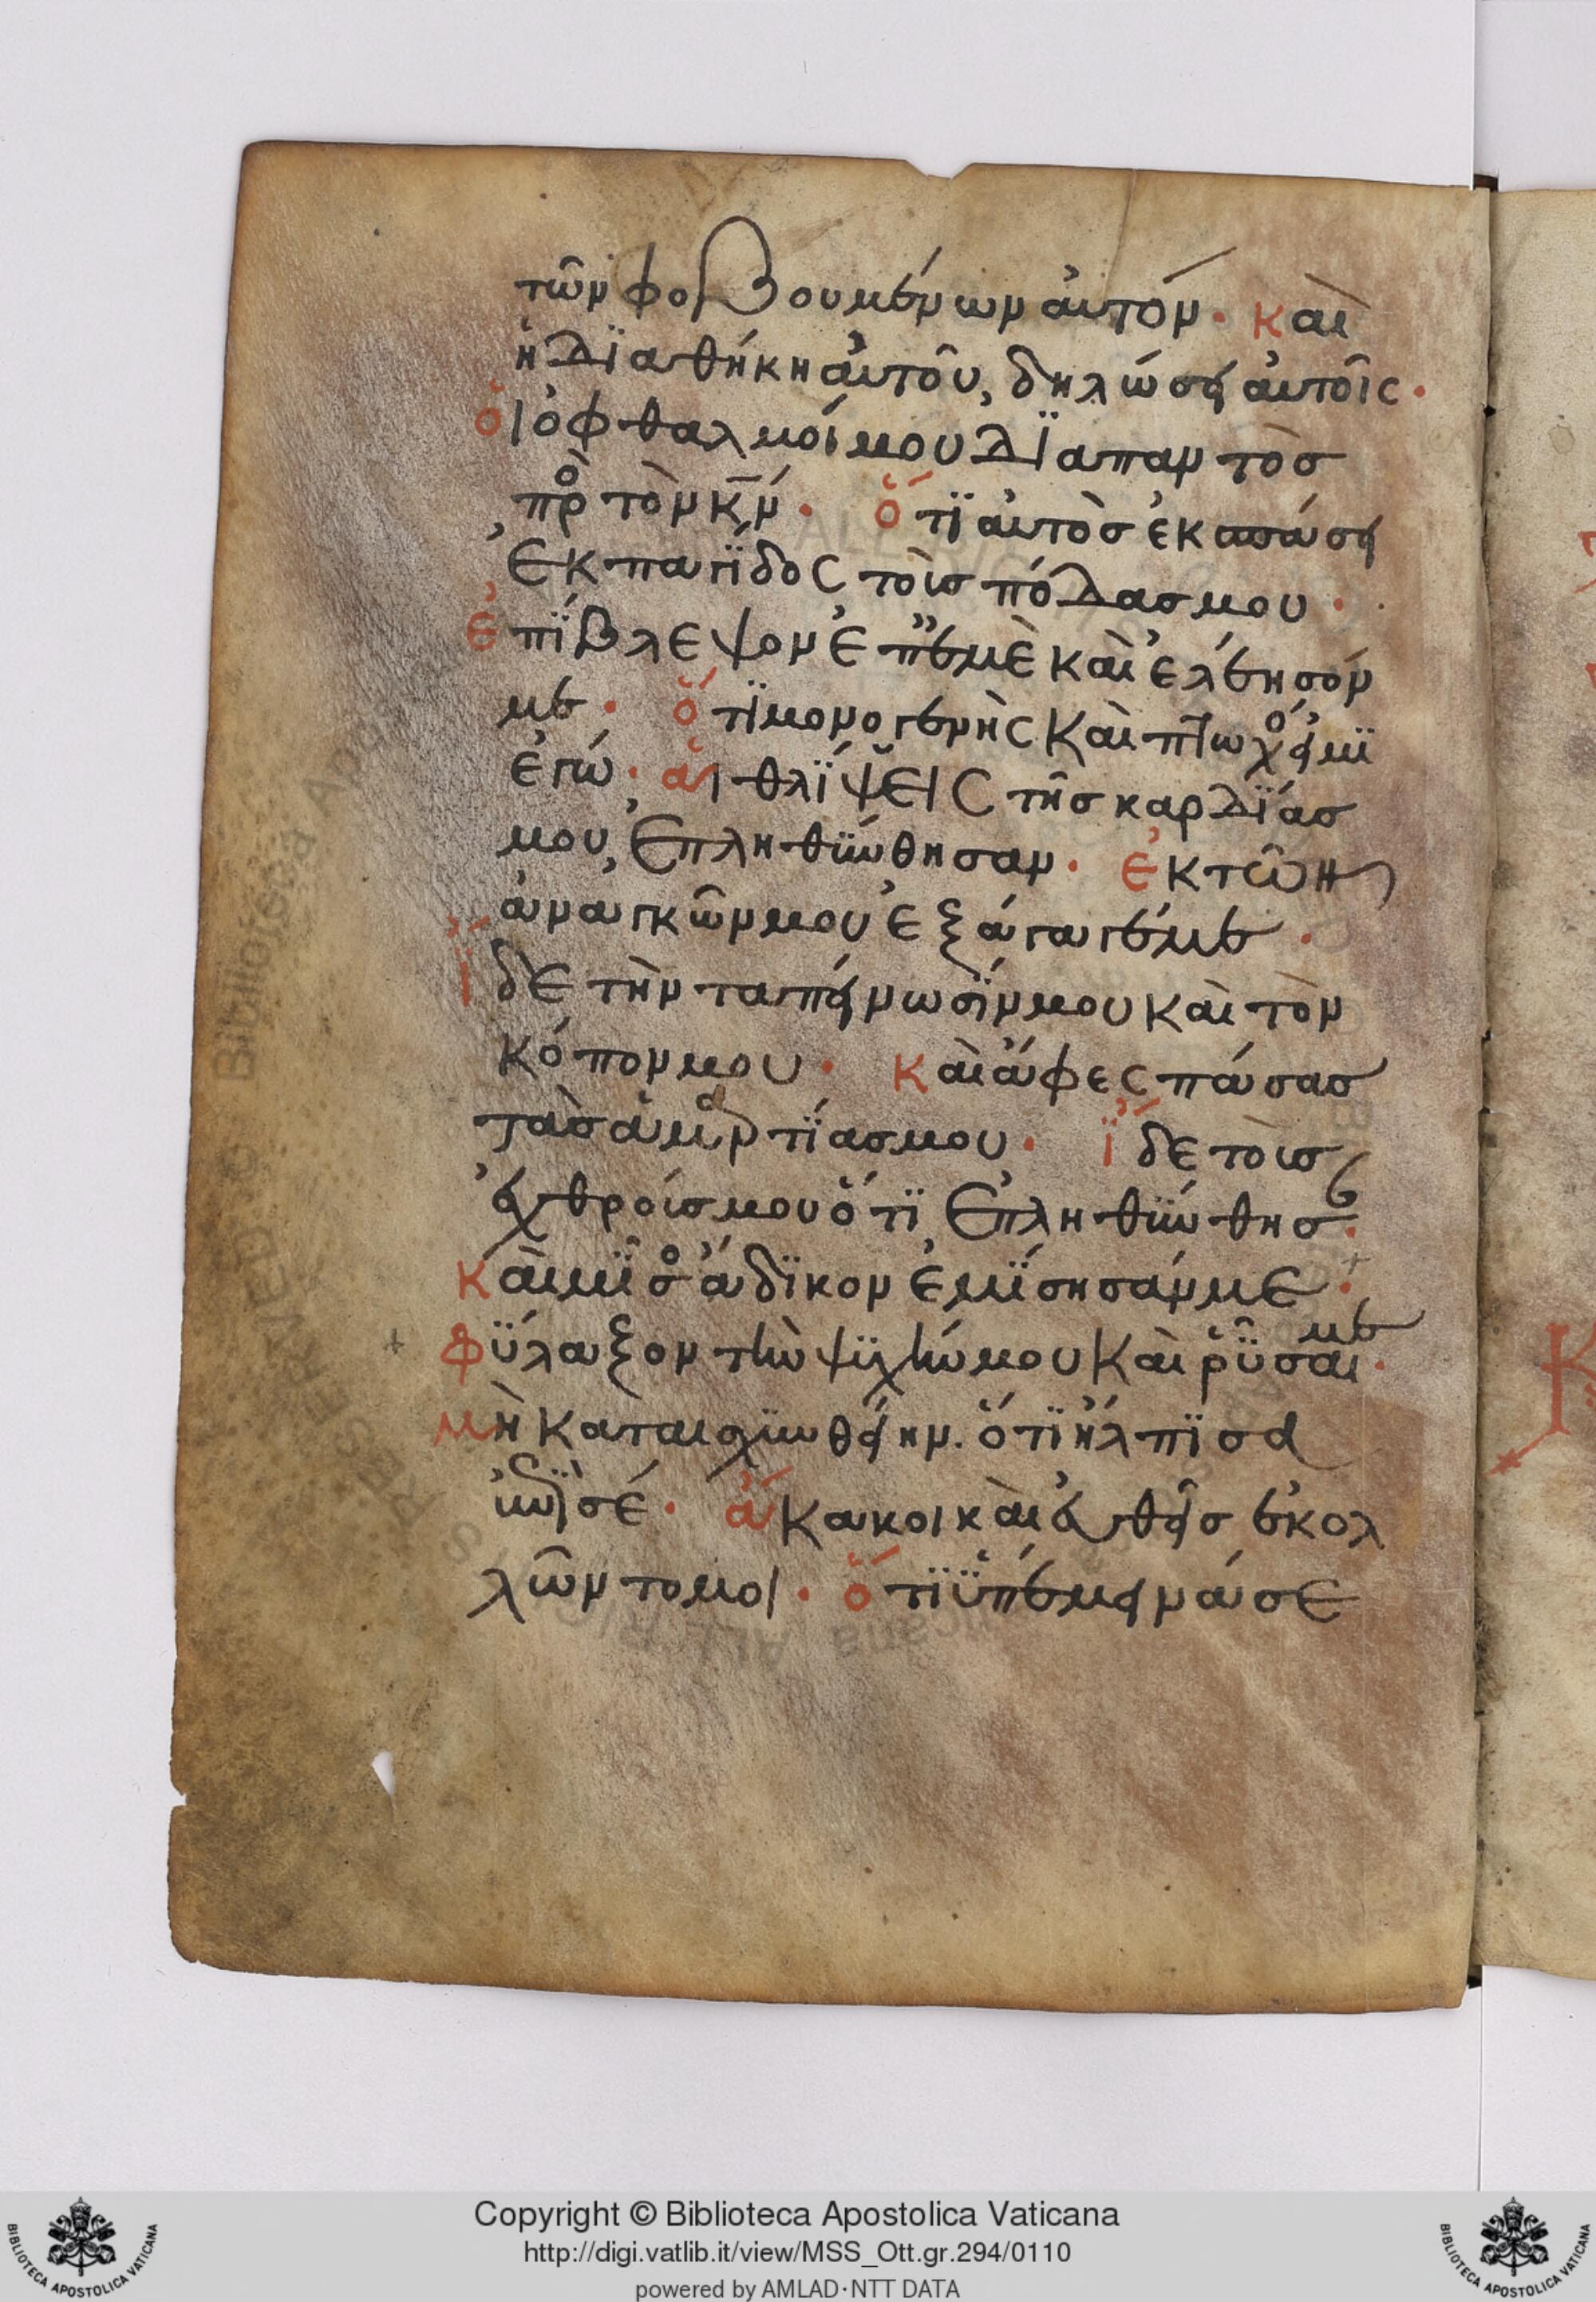 τῶν φοβουμένων ἀυτόν· καὶ
ἡ διαθήκη ἀυτοῦ, δηλώσει ἀυτοῖς·
ὁι ὀφθαλμοί μου διαπαντὸσ
πρὸ τὸν κ̅ν̅· ὅτϊ ἀυτὸσ ἐκσπάσει
ἐκ παγίδος τοὺσ πόδασ μου·
ἐπίβλεψον ἐπ ἐμὲ καὶ ἐλέησόν
με· ὅτϊ μονογενὴς καὶ πτωχό εἰμϊ
ἐγώ· ἁι θλίψεις τῆσ καρδίασ
μου, ἐπληθύνθησαν· ἐκ τῶν
ἀναγκῶν μου ἐξάγαγέ με·
ἴδε τὴν ταπείνωσίν μου καὶ τὸν
κόπον μου· καὶ ἄφες πάσασ
τὰσ ἁμαρτίασ μου· ἴδε τοὺσ
ἐχθροὺσ μου ὅτϊ ἐπληθύνθησ·
καὶ μῖσο ἄδϊκον ἐμίσησάν με·
φύλαξον τὴν ψυχήν μου καὶ ῥῦσαι με·
μὴ καταισχυνθείην. ὅτϊ ἤλπϊσα
ἐπὶ σέ· ἄκακοι καὶ ἐυθεῖσ ἐκολ
λῶντο μοι· ὅτϊ ὑπέμεινά σε
Copyright © Biblioteca Apostolica Vaticana
http://digi.vatlib.it/view/MSS_Ott.gr.294/0110
powered by AMLAD·NTT DATA
BIBLIOTECA APOSTOLICA VATICANA
BIBLIOTECA APOSTOLICA VATICANA